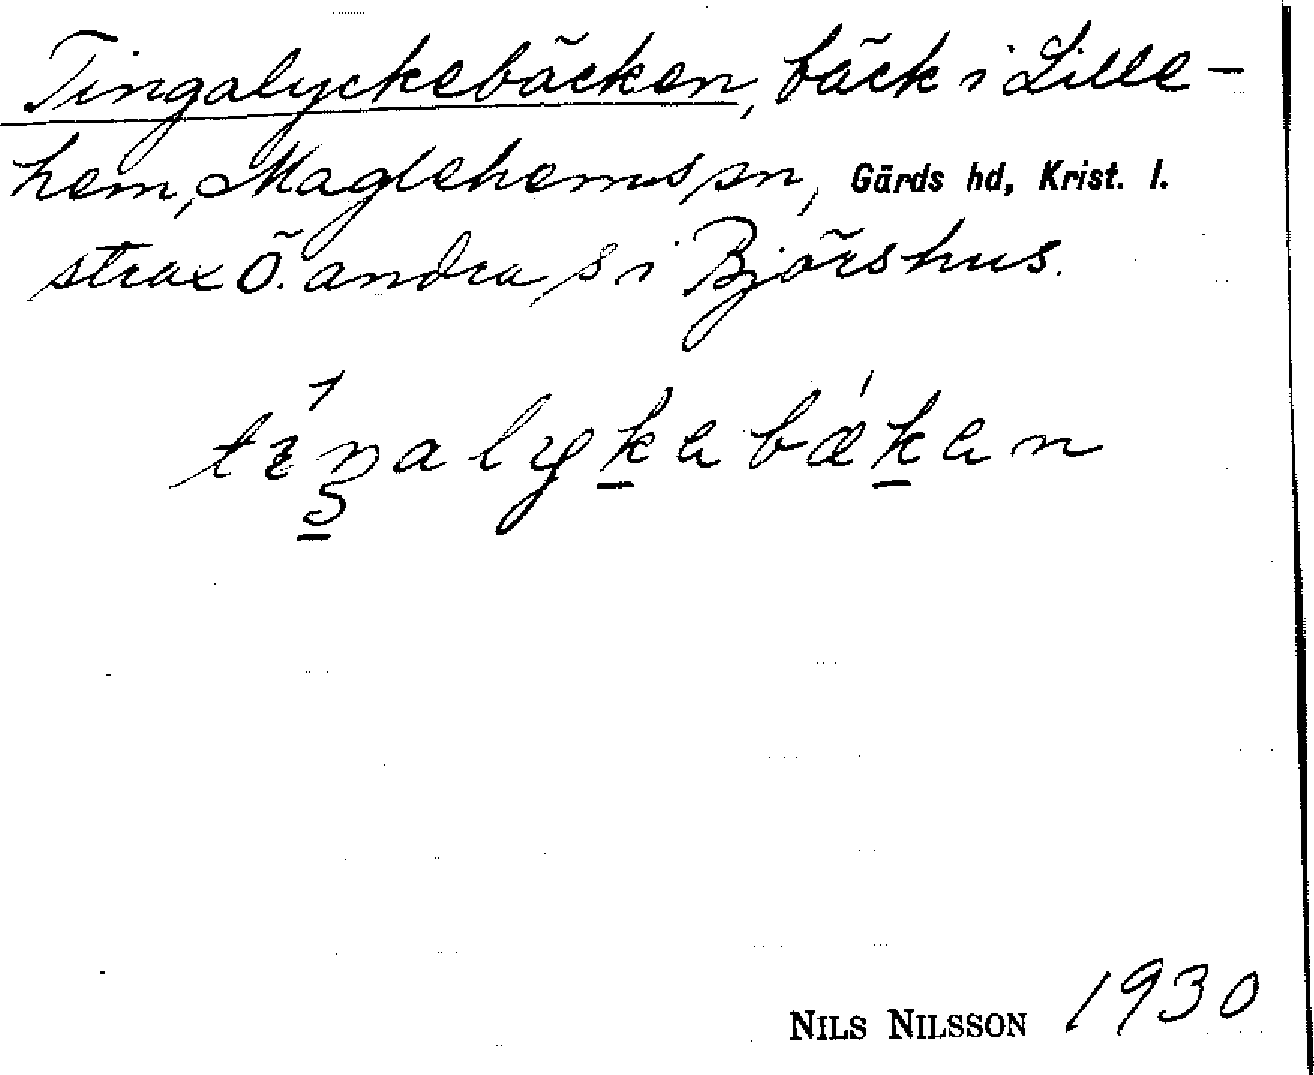 Tingalyckebäcken, bäck i Lille-
hem, Maglehems sn, Gärds hd, Krist. l.
strax Ö. andra s i Björshus.
NILS NILSSON 1930